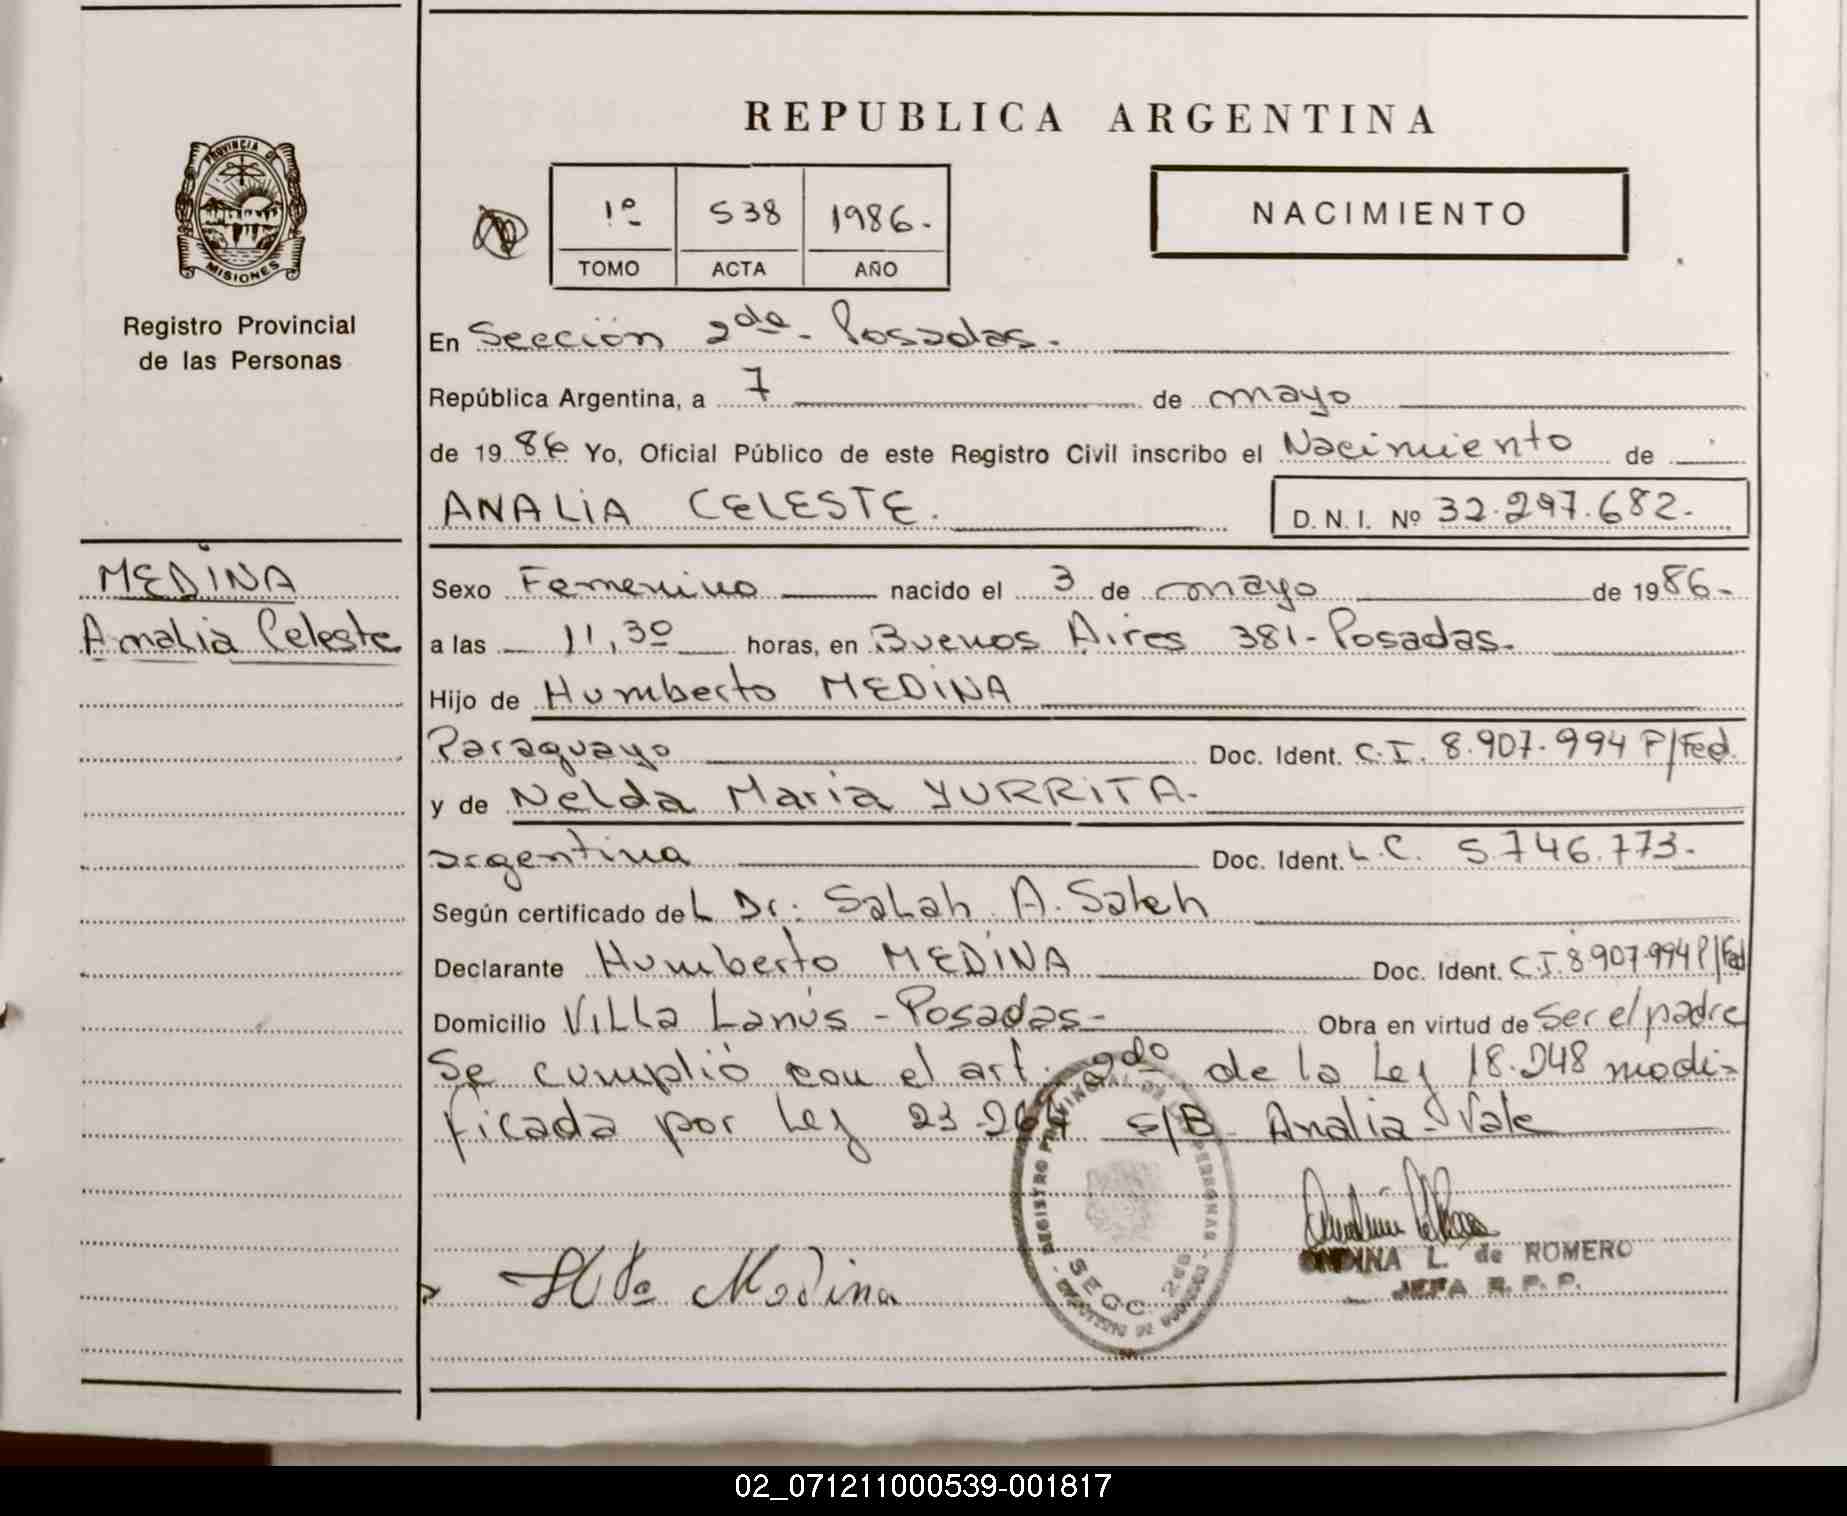 REPUBLICA ARGENTINA
PROVINCIA DE
MISIONES
Registro Provincial
de las Personas
1º 538 1986.-
TOMO ACTA AÑO
NACIMIENTO
En Sección 2da - Posadas.-
República Argentina, a 7 de mayo
de 1986 Yo, Oficial Público de este Registro Civil inscribo el Nacimiento de
ANALIA CELESTE. D. N. I. Nº 32.297.682.-
MEDINA
Analia Celeste
Sexo Femenino nacido el 3 de mayo de 1986.-
a las 11,30 horas, en Buenos Aires 381- Posadas.-
Hijo de Humberto MEDINA
Paraguayo Doc. Ident. C.I. 8.907.994 P/Fed.
y de Nelda Maria YURRITA.-
argentina Doc. Ident. L.C. 5.746.773.-
Según certificado del Dr. Salah A. Saleh
Declarante Humberto MEDINA Doc. Ident. C.I. 8.907.994 P/Fed
Domicilio Villa Lanús - Posadas - Obra en virtud de ser el padre
Se cumplió con el art. 2do de la Ley 18.248 modi-
ficada por Ley 23.264 s/B Analia - Vale
REGISTRO PROVINCIAL DE PERSONAS
SECC. 2da
Medina
ONDINA L. de ROMERO
JEFA R. P. P.
02_071211000539-001817